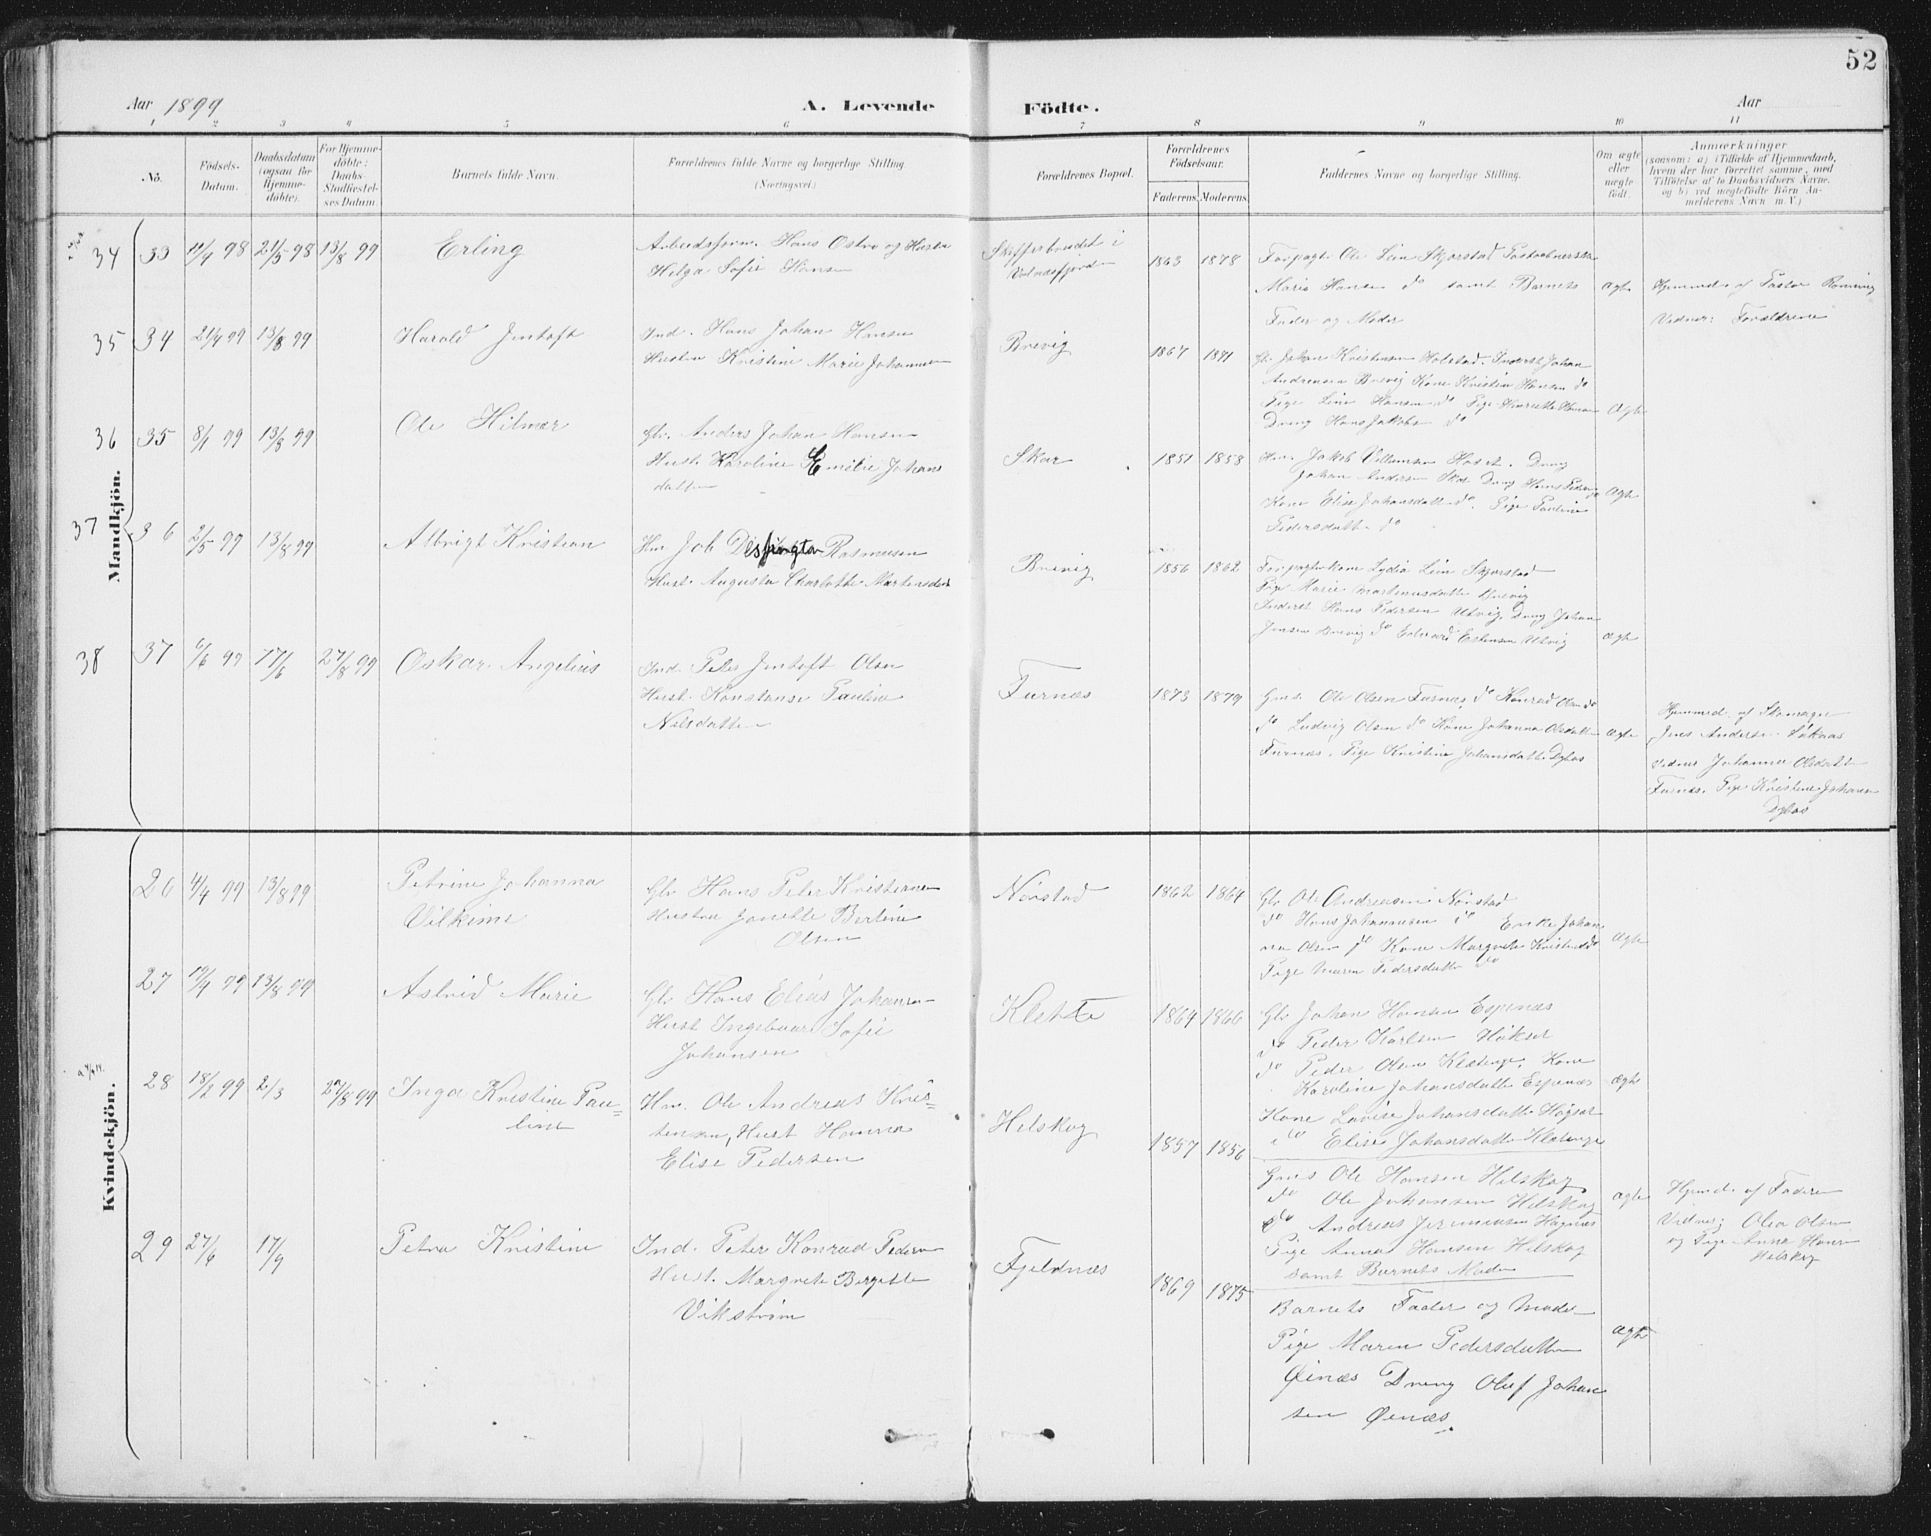 52
Aar 1899
A. Levende Födte.
Aar
1 2 3 4 5 6 7 8 9 10 11
No.
Födsels-
Datum.
Daabsdatum
(ogsaa for
Hjemme-
döbte).
For Hjemme-
döbte:
Daabs-
Stadfæstel-
ses Datum.
Barnets fulde Navn.
Forældrenes fulde Navne og borgerlige Stilling.
(Næringsvei.)
Forældrenes Bopæl.
Forældrenes
Födselsaar.
Faderens Moderens
Faddernes Navne og borgerlige Stilling.
Om ægte
eller
uægte
födt.
Anmærkninger
(saasom: a) i Tilfælde af Hjemmedaab,
hvem der har forrettet samme, med
Tilföielse af to Daabsvidners Navne.
og b) ved uægtefödte Börn An-
melderens Navn m. V.)
Mandkjön.
34 33 11/4 98 21/5 98 13/8 99 Erling
Arbeidsform. Hans Ostro og Hustru
Helga Sofie Hansen
Skifferbrudet i
Valnesfjorden
1863 1878
Forpagt. Ole Lein Skjerstad
Marie Hansen do samt Barnets
Fader og Moder
ægte
Hjemmed. af Pastor Rønnevig
Vidner: Forældrene
35 34 21/4 99 13/8 99 Harald Jentoft
Ind. Hans Johan Hansen
Hustru Kristine Marie Johannsen
Brevig
1867 1871
Gb. Johan Kristensen Holstad. Inderst Johan
Andreasen Brevig Kone Kristine Hansen do
Pige Lina Hansen do Pige Henriette Hansen
Dreng Hans Jakobs. do
Ægte
36 35 8/1 99 13/8 99 Ole Hilmar
Gbr. Anders Johan Hansen
Hust. Karoline Emilie Johans
datter
Skar
1851 1858
Hm. Jakob Villumsen Hoset. Dreng
Johan Andersen Skar Dreng Hans Peder
Kone Elise Johansdatter do. Pige Pauline
Pedersdatter do
Ægte
37 36 2/5 99 13/8 99 Albrigt Kristian
Hm Job Dessington Rasmussen
Hust. Augusta Charlotte Martinsdatter
Brevig
1856 1862
Forpagterkone Lydia Lein Skjerstad
Pige Marie Martinusdatter Brevig
Inderst Hans Pedersen Utvig Dreng Johan
Jensen Brevig do Edvard Estensen Utvig
ægte
38 37 6/6 99 17/6 27/8 99 Oskar Angelius
Ind. Peter Jentoft Olsen
Hust. Konstanse Pauline
Nilsdatter
Furnæs
1873 1879
Gms. Ole Olsen Furnæs, do Konrad Olsen do
do Ludvig Olsen do Kone Johanna Olsdatter
Furnæs. Pige Kristine Johansdatter Dybos
ægte
Hjemmed. af Skomager
Jens Anders.
Vidner Johanna Olsdatter
Furnæs. Pige Kristine Johansen
Dybos
Kvindekjön.
26 4/4 99 13/8 99 Petrine Johanna
Vilkime
Gbr Hans Peter Kristiansen
Hustru Janette Berline
Olsen
Nørstad
1862 1864
Gbr Ole Andreasen Nørstad
do Hans Johannesen do Enke Johan
na Olsen do Kone Margrete Kristensd. do
Pige Maren Pedersdatter do
Ægte
27 19/4 99 13/8 99 Astrid Marie
Gbr Hans Elias Johansen
Hust Ingebaar Sofie
Johansen
Kletten
1864 1866
Gbr Johan Hansen Espenæs
do Peder Karlsen Høksar
do Peder Olsen Kletenge, Kone
Karoline Johansdatter Espenæs
Kone Lovise Johansdatter Høgsar
do Elise Johansdatter Kletenge
ægte
28 18/2 99 2/3 27/8 99 Inga Kristine Pau-
line
Hm. Ole Andreas Kris-
tensen, Hust Hanna
Elise Pedersen
Helskog
1857 1856
Gms Ole Hansen Helskog
do Ole Johansen Helskog
do Andreas Jeremiasen Høgnæs
Pige Anna Hansen Helskog
samt Barnets Moder
ægte
Hjemd. af Faderen
Vidner; Olea Olsen
og Pige Anna Hansen
Helskog
29 27/6 17/9 Petra Kristine
Ind. Peter Konrad Peders.
Hust. Margrete Bergitte
Vikstrøm
Fjeldnæs
1869 1875
Barnets Fader og Moder
Pige Maren Pedersdatter
Øinæs Dreng Oluf Johan
sen Øenæs.
ægte